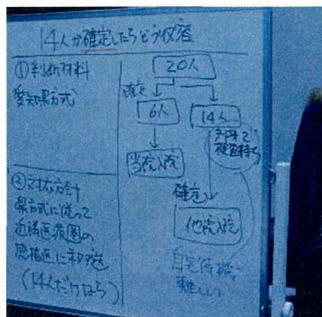 14人が確定したらどう収容
①判断材料
愛知県方式
②対応方針
県方式に従って
近隣医療圏の
感指医に搬送
(14人だけなら)
20人
確定
6人
14人
当院入院
検査待ち
確定
他院入院
自宅待機
難しい